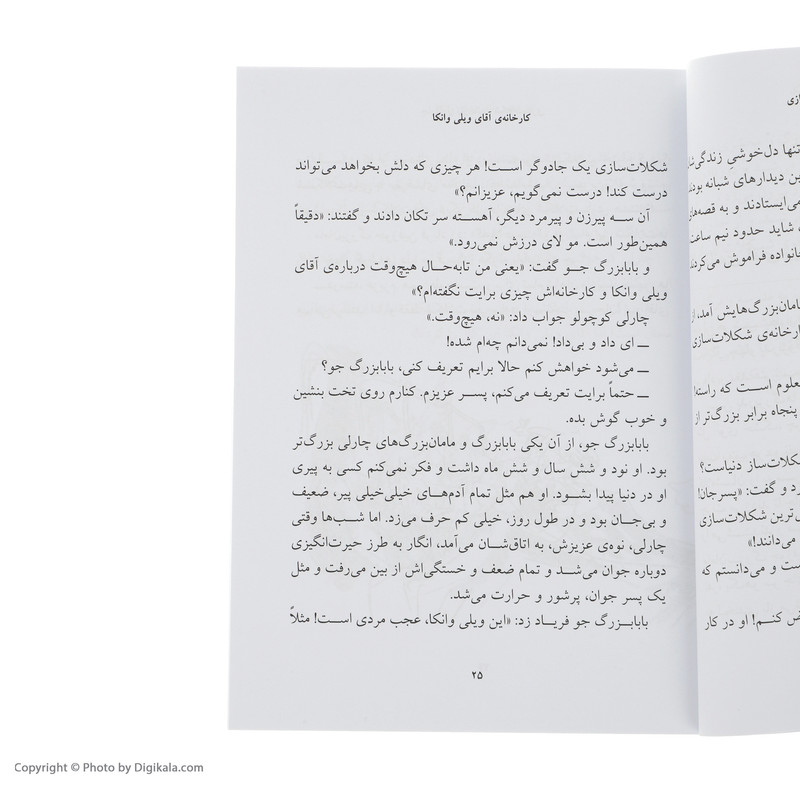 کارخانه‌ی آقای ویلی وانکا
شکلات‌سازی یک جادوگر است! هر چیزی که دلش بخواهد می‌تواند
درست کند! درست نمی‌گویم، عزیزانم؟»
آن سه پیرزن و پیرمرد دیگر، آهسته سر تکان دادند و گفتند: «دقیقاً
همین‌طور است. مو لای درزش نمی‌رود.»
و بابابزرگ جو گفت: «یعنی من تابه‌حال هیچ‌وقت درباره‌ی آقای
ویلی وانکا و کارخانه‌اش چیزی برایت نگفته‌ام؟»
چارلی کوچولو جواب داد: «نه، هیچ‌وقت.»
ــ ای داد و بی‌داد! نمی‌دانم چه‌ام شده!
ــ می‌شود خواهش کنم حالا برایم تعریف کنی، بابابزرگ جو؟
ــ حتماً برایت تعریف می‌کنم، پسر عزیزم. کنارم روی تخت بنشین
و خوب گوش بده.
بابابزرگ جو، از آن یکی بابابزرگ و مامان‌بزرگ‌های چارلی بزرگ‌تر
بود. او نود و شش سال و شش ماه داشت و فکر نمی‌کنم کسی به پیری
او در دنیا پیدا بشود. او هم مثل تمام آدم‌های خیلی‌خیلی پیر، ضعیف
و بی‌جان بود و در طول روز، خیلی کم حرف می‌زد. اما شب‌ها وقتی
چارلی، نوه‌ی عزیزش، به اتاق‌شان می‌آمد، انگار به طرز حیرت‌انگیزی
دوباره جوان می‌شد و تمام ضعف و خستگی‌اش از بین می‌رفت و مثل
یک پسر جوان، پرشور و حرارت می‌شد.
بابابزرگ جو فریاد زد: «این ویلی وانکا، عجب مردی است! مثلاً
۲۵
تنها دل‌خوشیِ زندگی
دیدارهای شبانه
می‌ایستادند و به
شاید حدود نیم ساعت
فراموش می‌کردند
مامان‌بزرگ‌هایش آمد،
شکلات‌سازی
است که
پنجاه برابر بزرگ‌تر از
دنیاست؟
و گفت: «پسرجان!
شکلات‌سازی
می‌دانند!»
و می‌دانستم که
کنم! او در کار
Copyright © Photo by Digikala.com